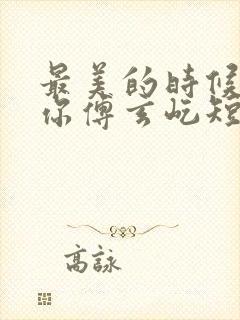 最美的時候
你傅玄屹短
高詠